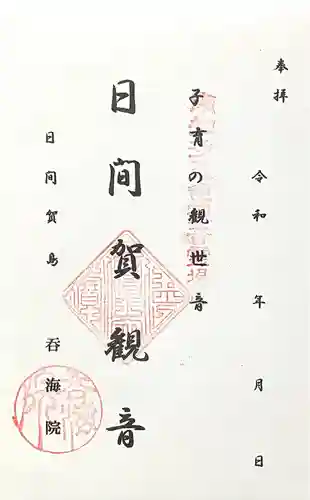 奉拝
令和 年 月 日
子育の観世音
日間賀観音
日間賀島 呑海院